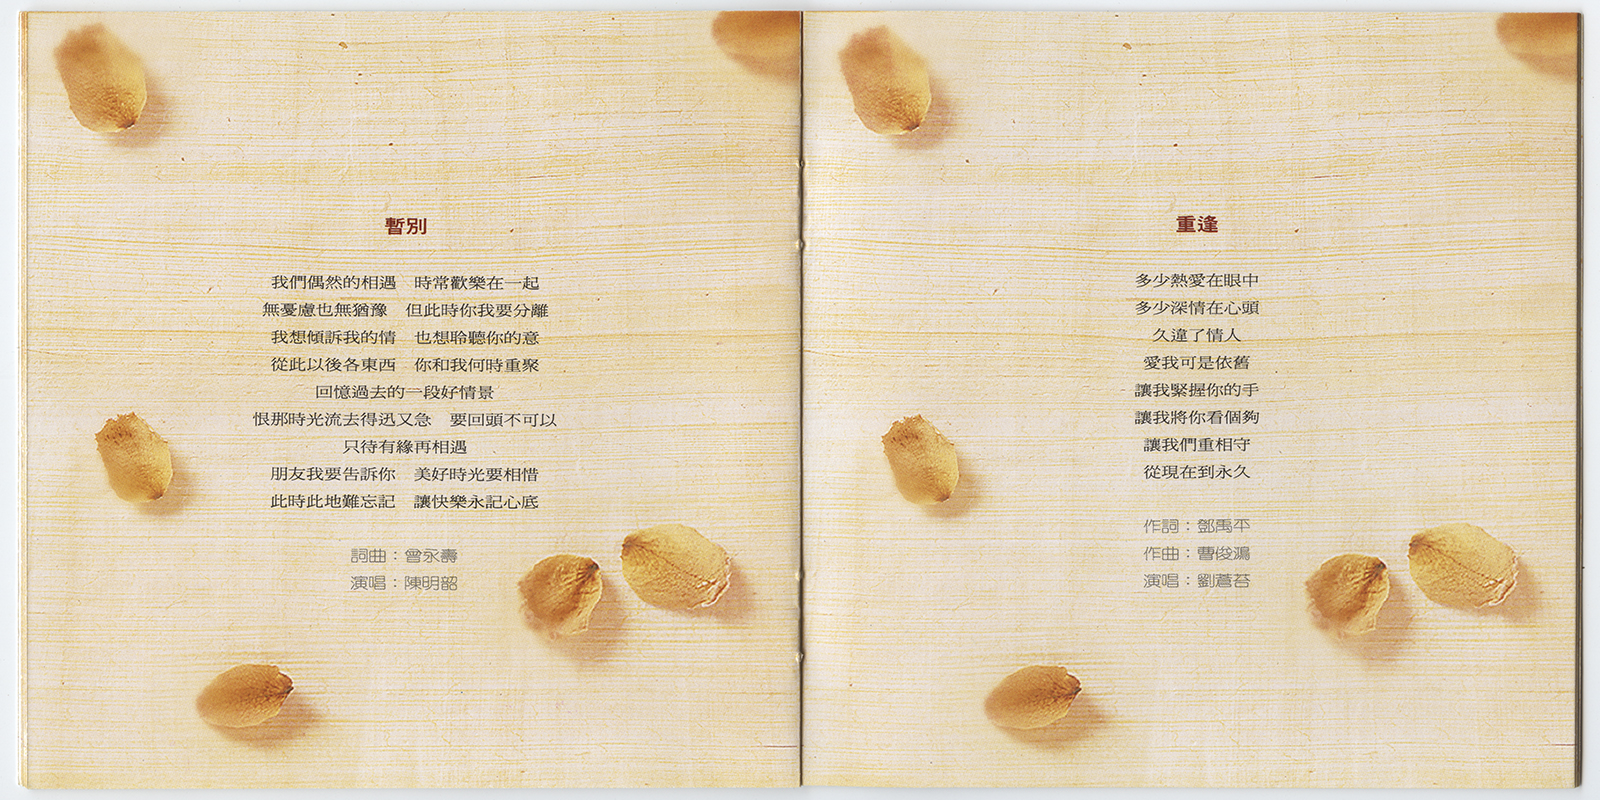 暫別
我們偶然的相遇　時常歡樂在一起
無憂慮也無猶豫　但此時你我要分離
我想傾訴我的情　也想聆聽你的意
從此以後各東西　你和我何時重聚
回憶過去的一段好情景
恨那時光流去得迅又急　要回頭不可以
只待有緣再相遇
朋友我要告訴你　美好時光要相惜
此時此地難忘記　讓快樂永記心底
詞曲：曾永壽
演唱：陳明韶
重逢
多少熱愛在眼中
多少深情在心頭
久違了情人
愛我可是依舊
讓我緊握你的手
讓我將你看個夠
讓我們重相守
從現在到永久
作詞：鄧禹平
作曲：曹俊鴻
演唱：劉蒼苔